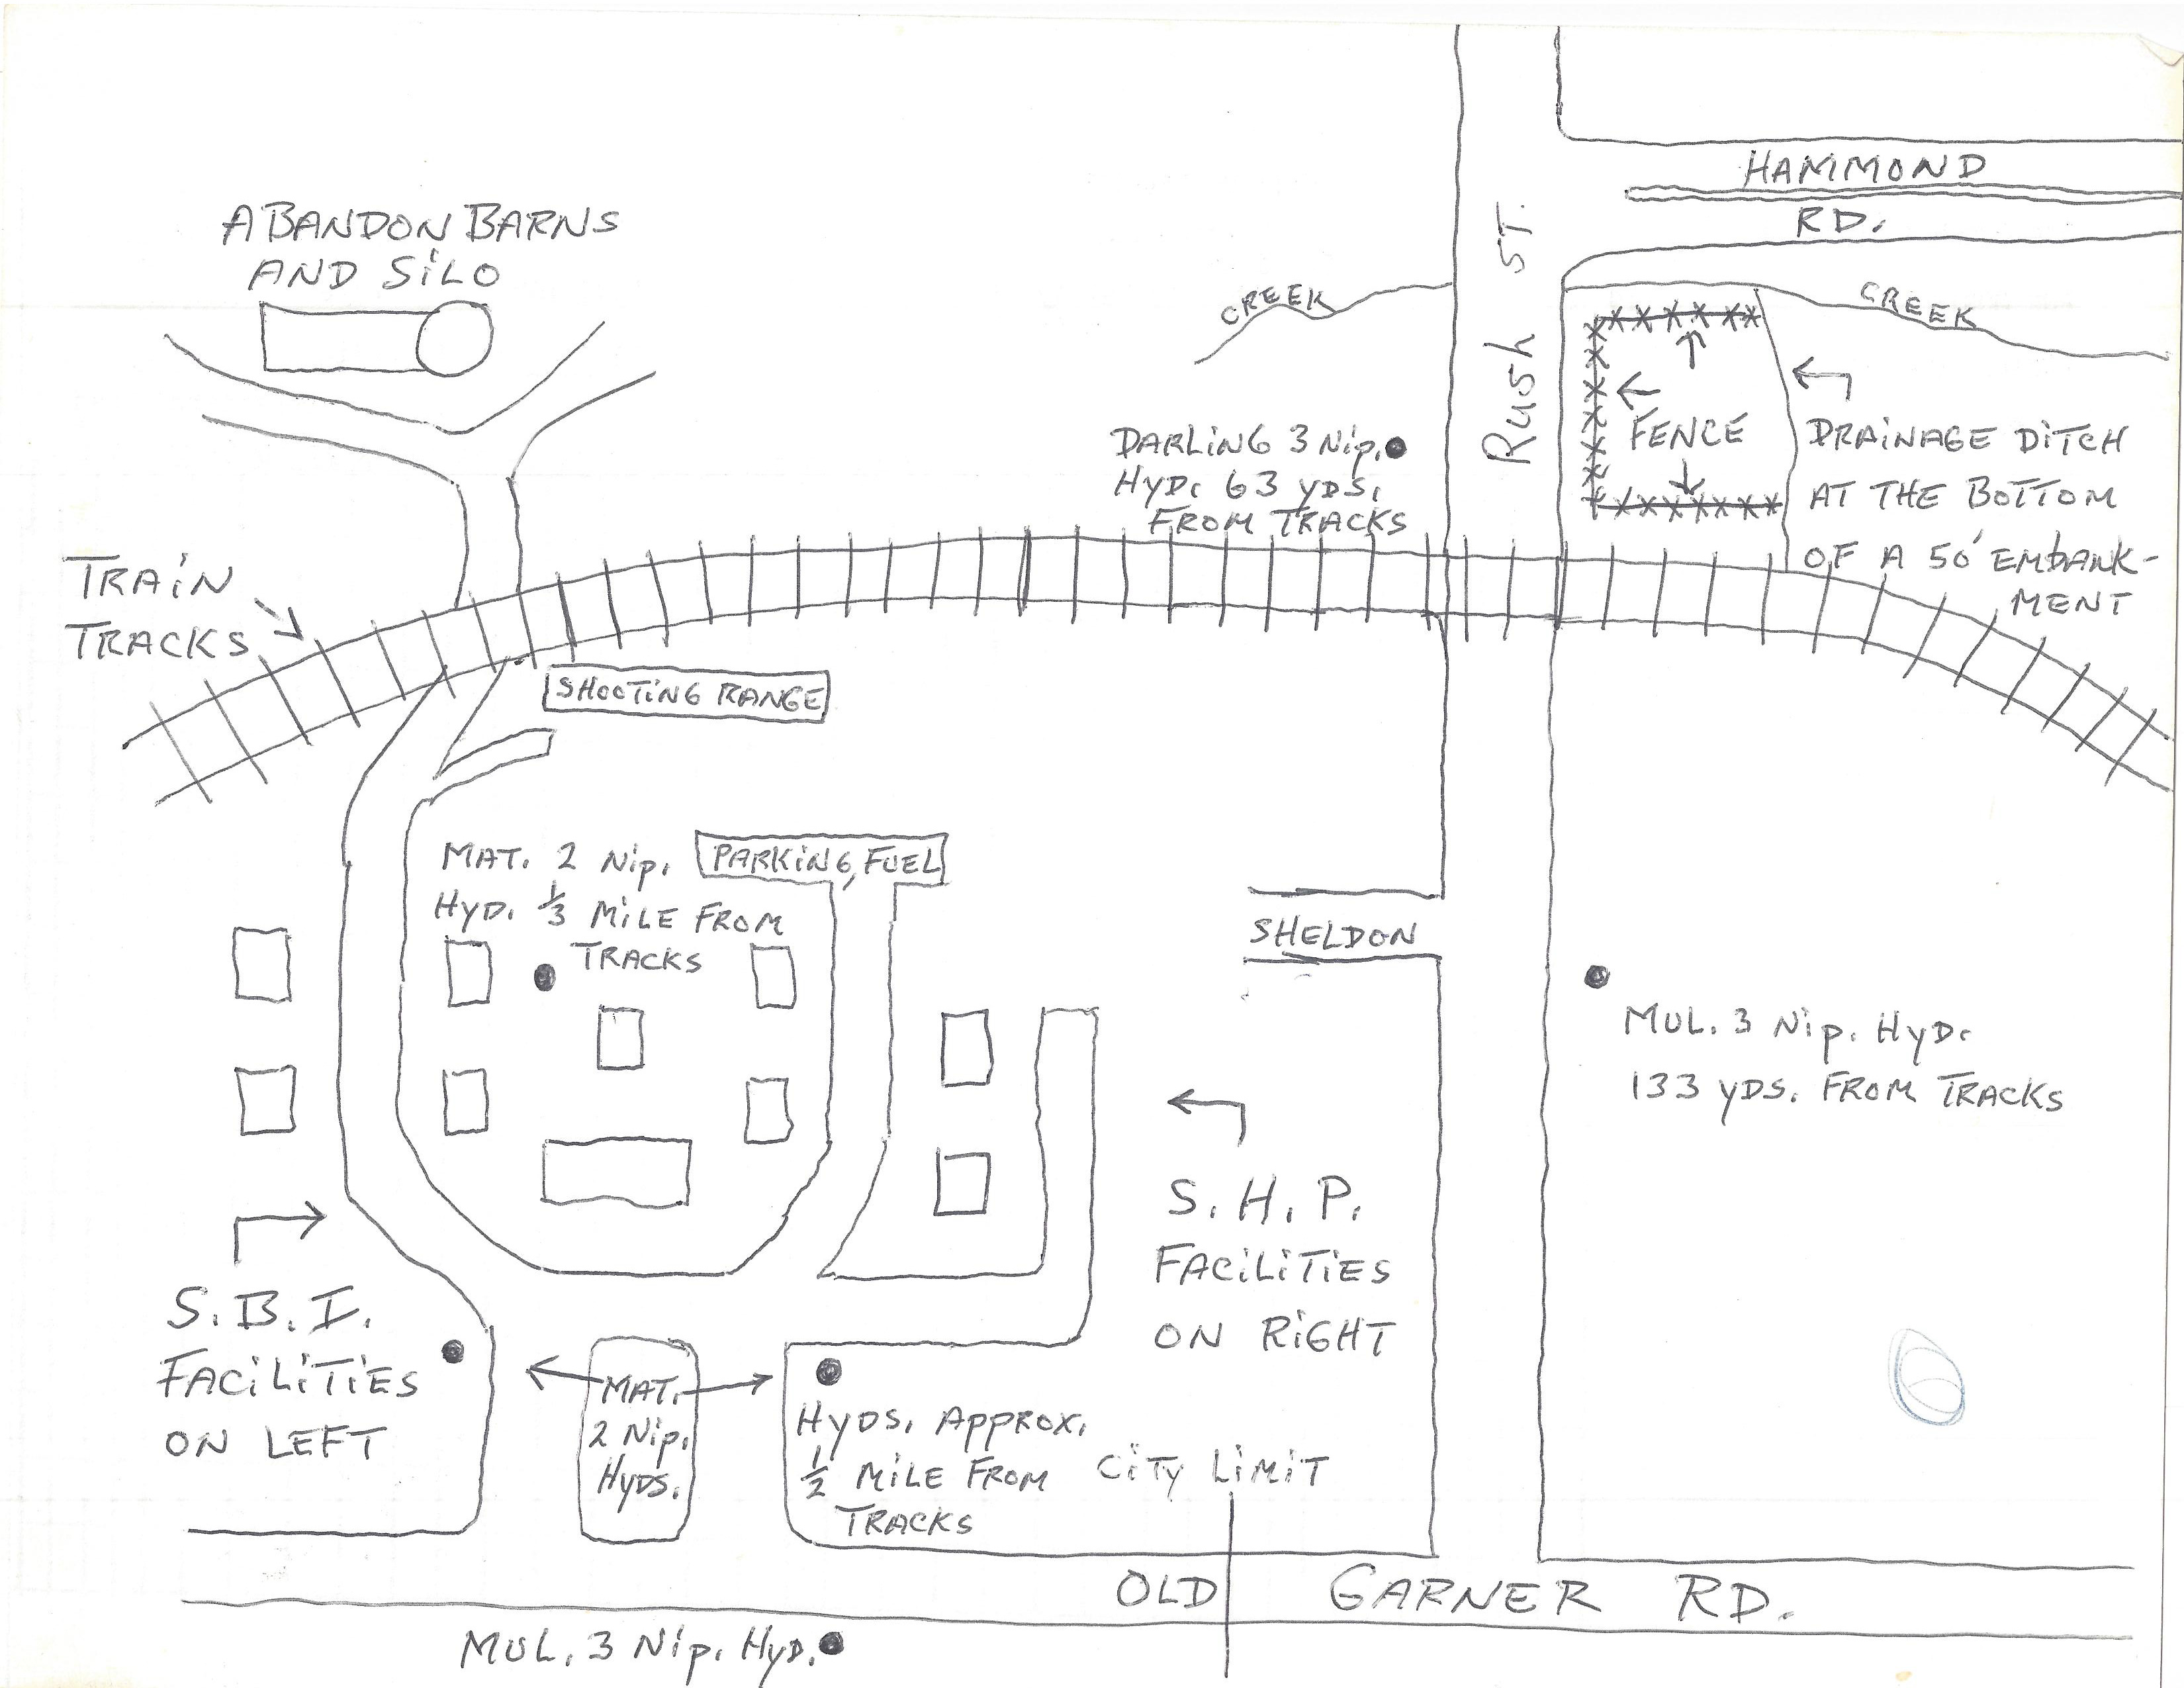 HAMMOND
RD.
Rush ST.
ABANDON BARNS
AND SILO
CREEK
CREEK
FENCE
DRAINAGE DITCH
AT THE BOTTOM
OF A 50' EMBANK-
MENT
DARLING 3 Nip.
HYD. 63 YDS.
FROM TRACKS
TRAIN
TRACKS
SHOOTING RANGE
MAT. 2 Nip.
HYD. 1/3 MILE FROM
TRACKS
PARKING, FUEL
SHELDON
MUL. 3 Nip. HyD.
133 YDS. FROM TRACKS
S.H.P.
FACILITIES
ON RIGHT
S.B.I.
FACILITIES
ON LEFT
MAT.
2 Nip.
HYDS.
HYDS. APPROX.
1/2 MILE FROM
TRACKS
CITY LIMIT
OLD GARNER RD.
MUL. 3 Nip. HyD.